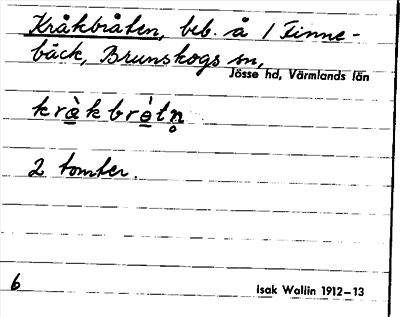 Kråkbråten, beb. å 1 Finne-
bäck, Brunskogs sn,
Jösse hd, Värmlands län
kràkbrètn̥
2 tomter.
6
Isak Wallin 1912–13